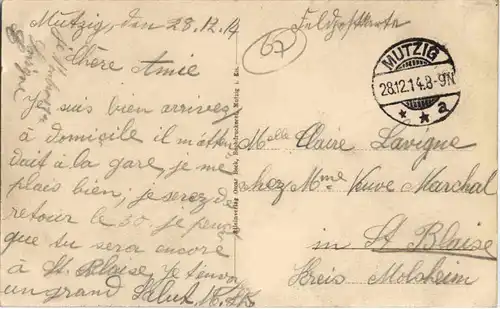 Mutzig, den 28.12.14
Chère Amie
Je suis bien arrivez
à domicile il m'atten
dait à la gare, je me
plais bien; je serez d.
retour le 30. je pense
que tu sera encore
à St. Blaise, Je tenvoi
un grand Salut, M.
Feldpostkarte
67
MUTZIG
28.12.14.8-9N
* * a
Melle Claire Lavigne
chez Mme Veuve Marchal
in St Blaise
Kreis Molsheim